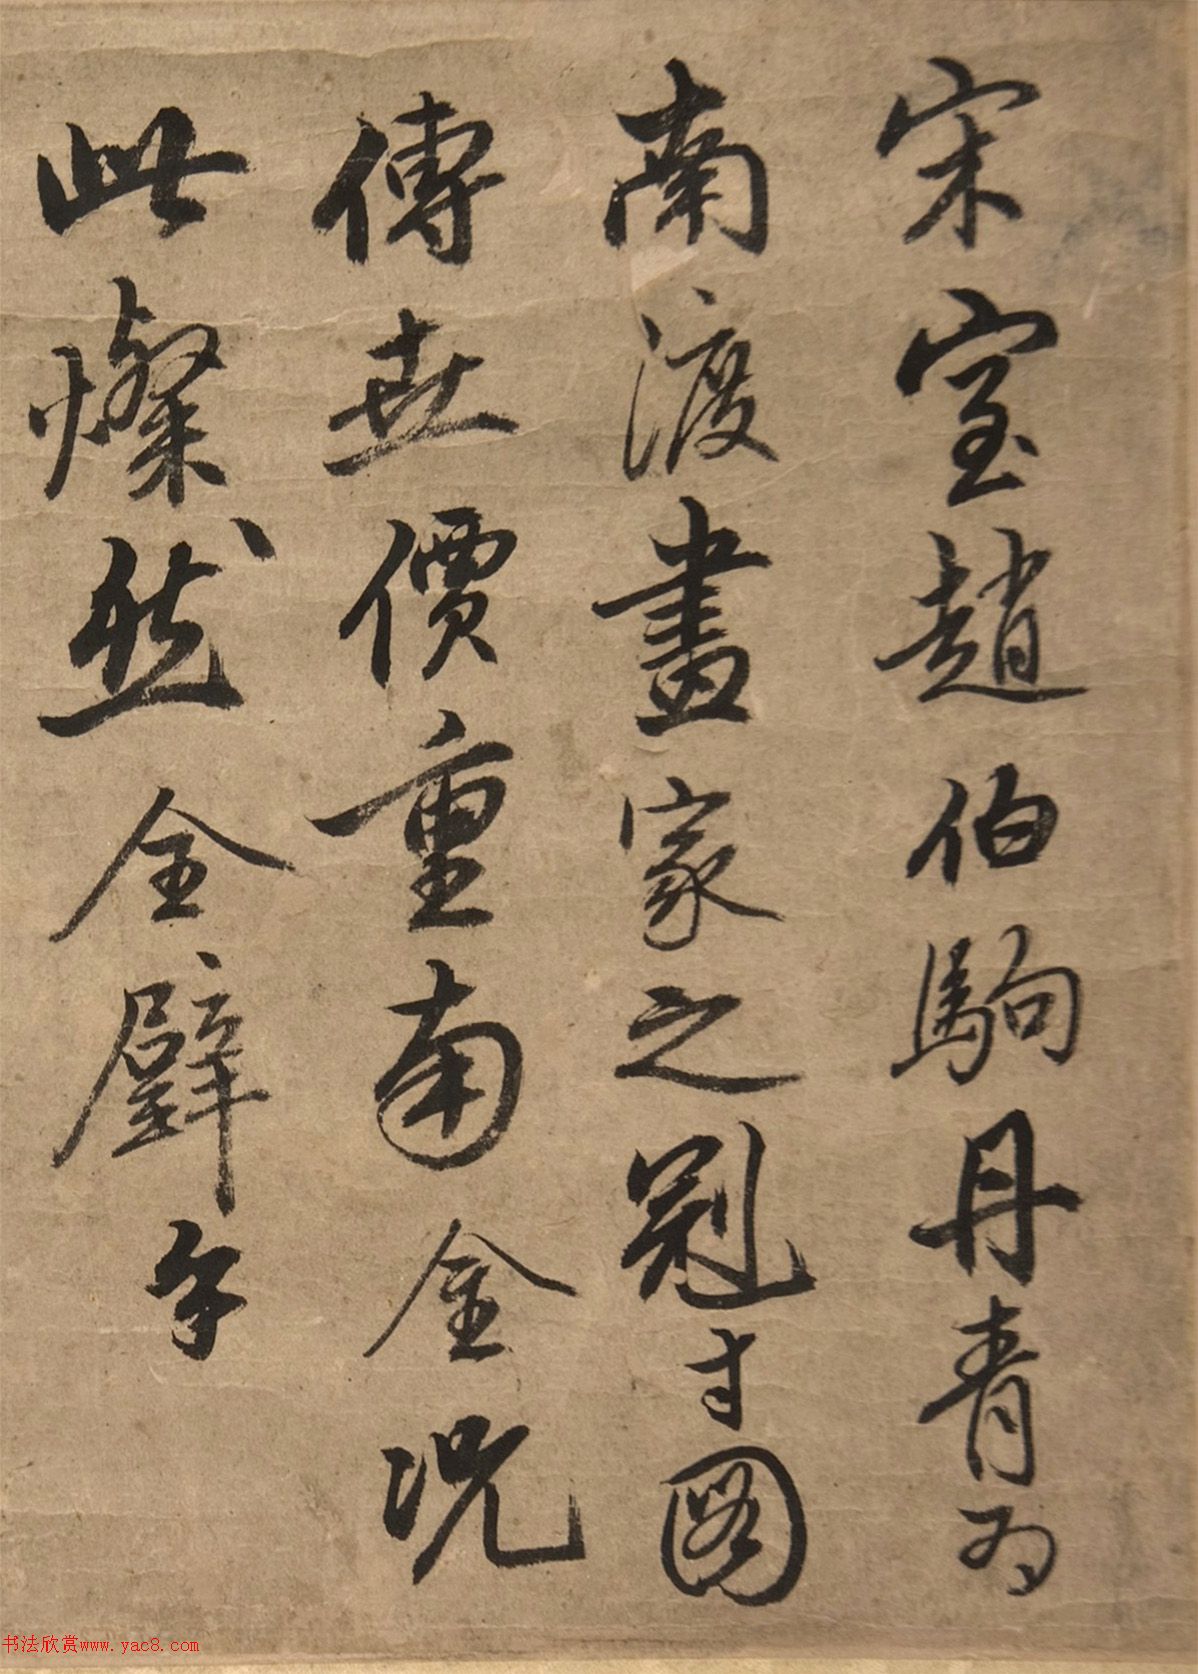 宋室趙伯駒丹青為
南渡畫家之冠寸圖
傳世價重南金況
此燦然全璧乎
书法欣赏www.yac8.com